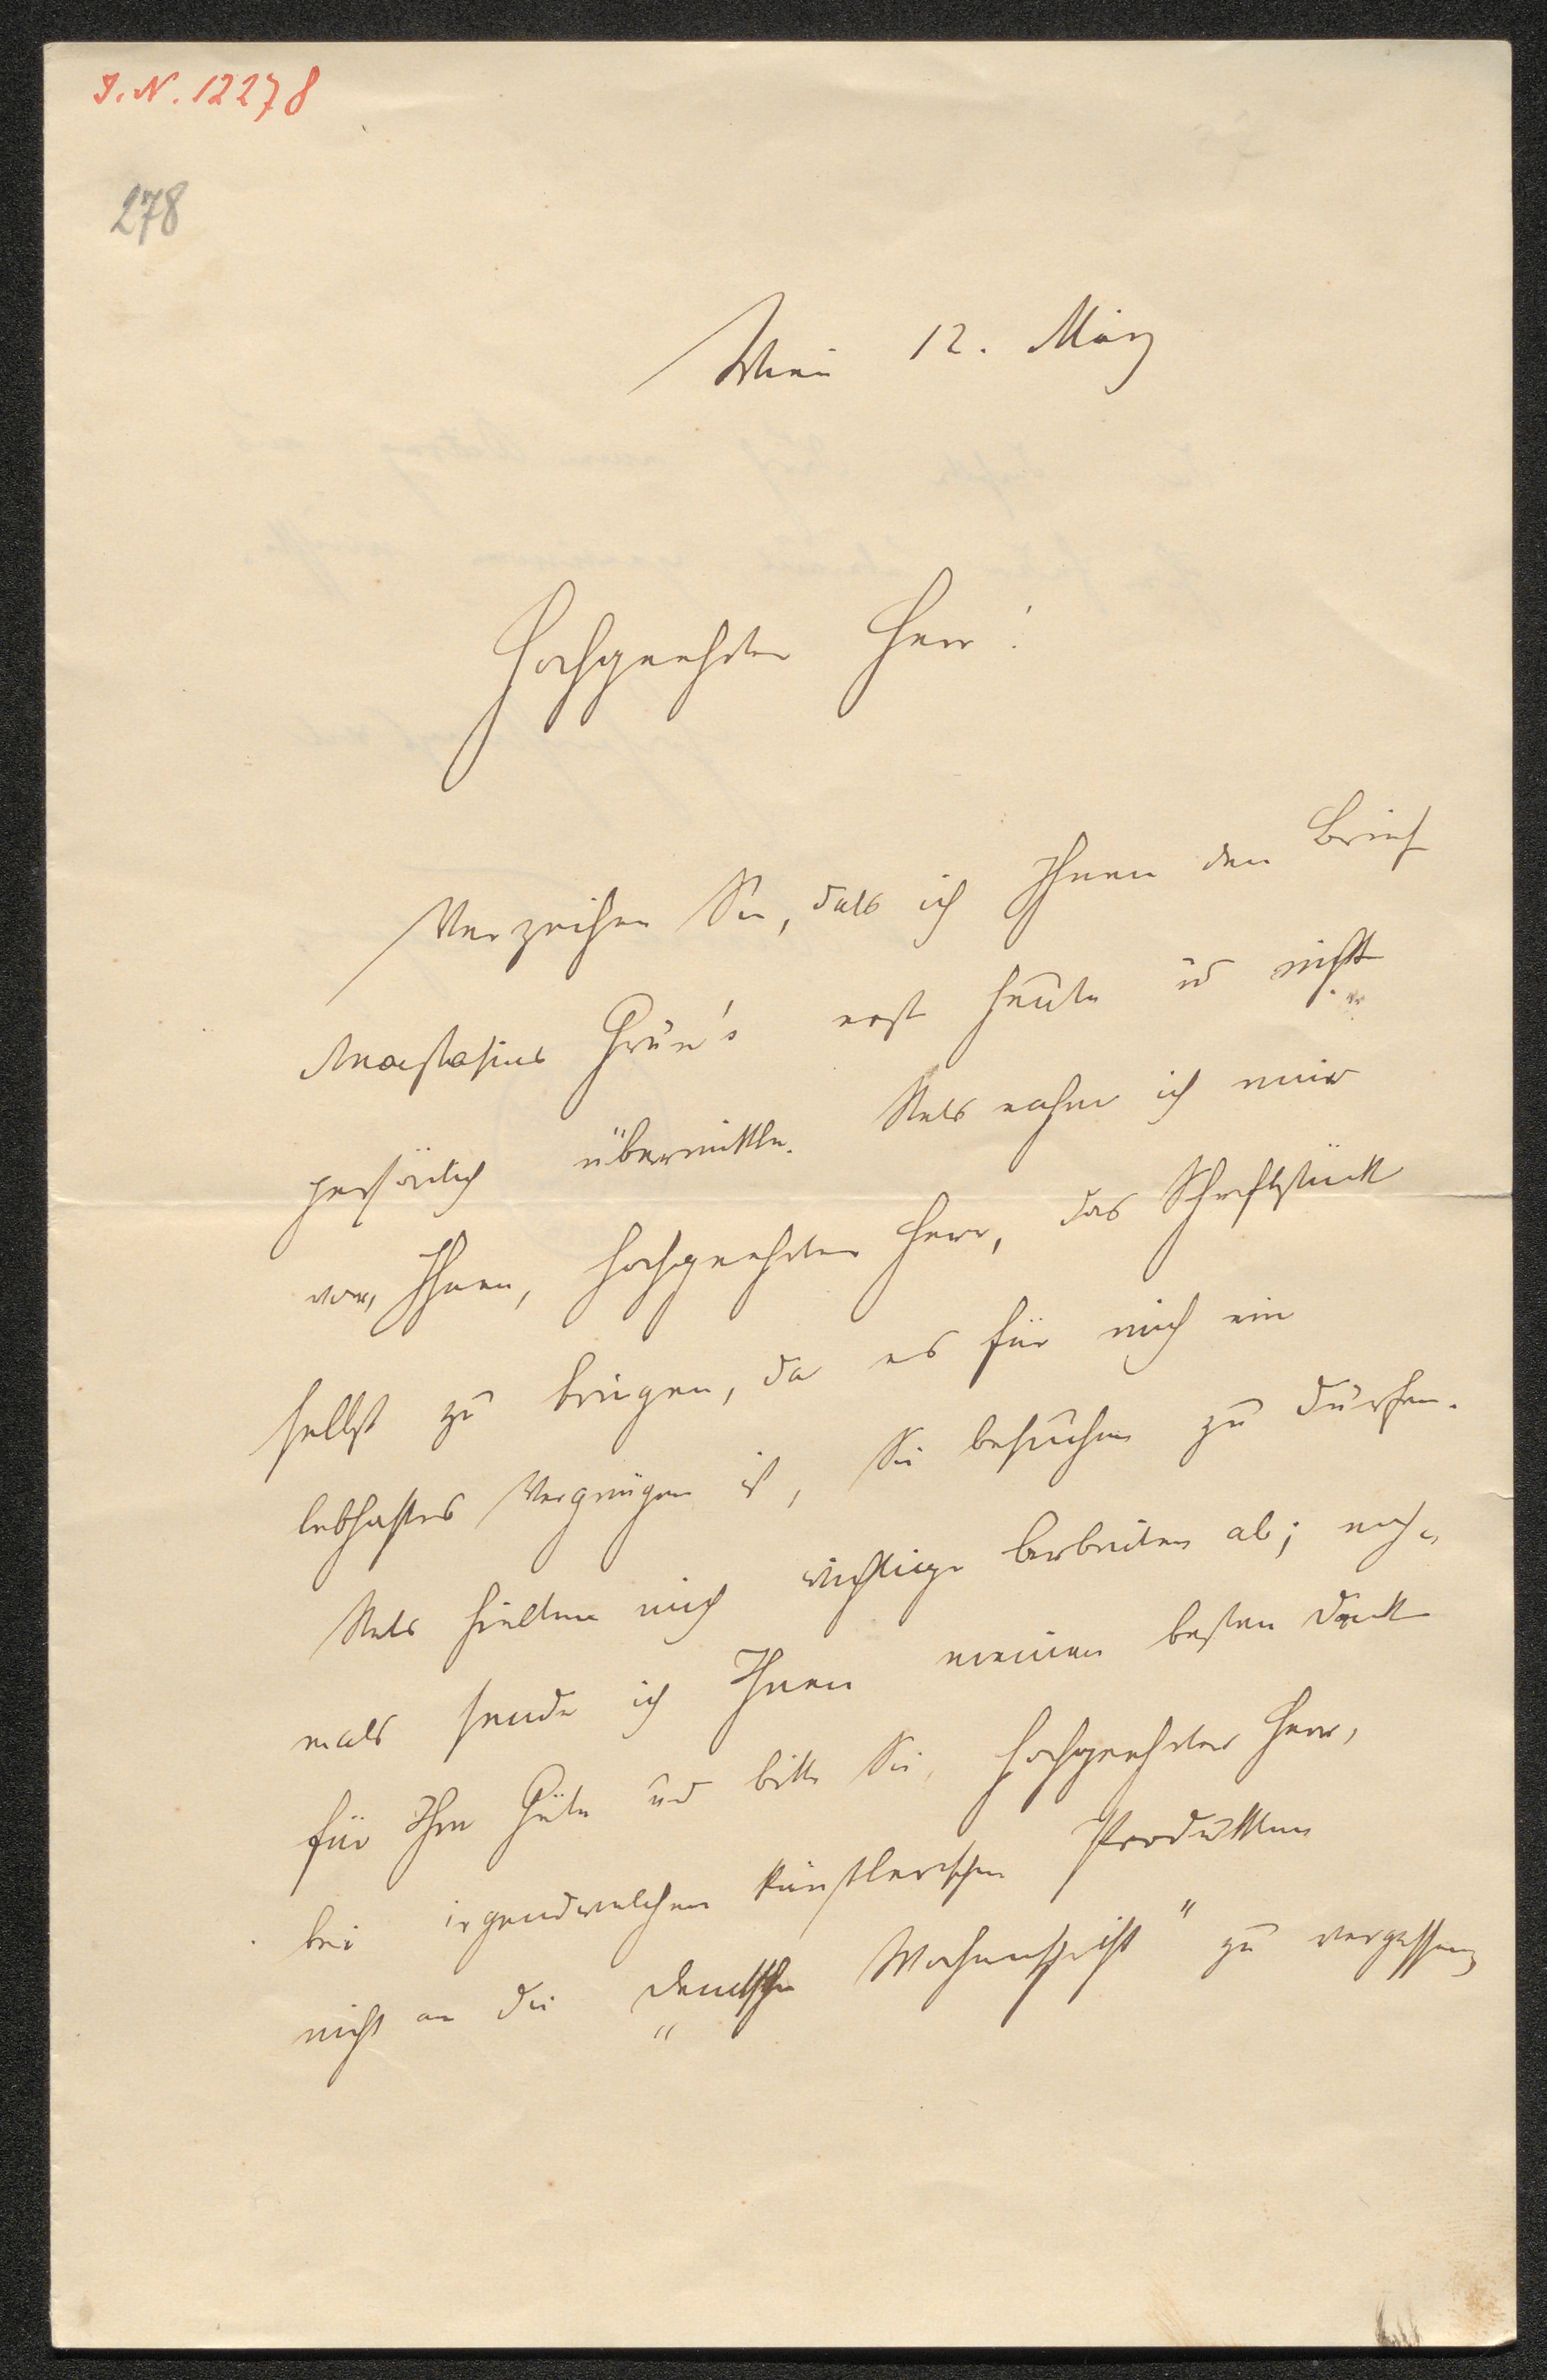 I. N. 12278
278
Wien 12. März
Hochgeehrter Herr!
Verzeihen Sie, dass ich Ihnen den Brief
Anastasius Grün's erst heute u nicht
persönlich übermittle. Stets nahm ich mir
vor, Ihnen, hochgeehrter Herr, das Schriftstück
selbst zu bringen, da es für mich ein
lebhaftes Vergnügen ist, Sie besuchen zu dürfen.
Stets hielten mich wichtige Arbeiten ab; noch-
mals sende ich Ihnen meinen besten Dank
für Ihre Güte und bitte Sie, hochgeehrter Herr,
bei irgendwelchen künstlerischen
nicht an die „Deutsche Wochenschrift" zu vergessen,